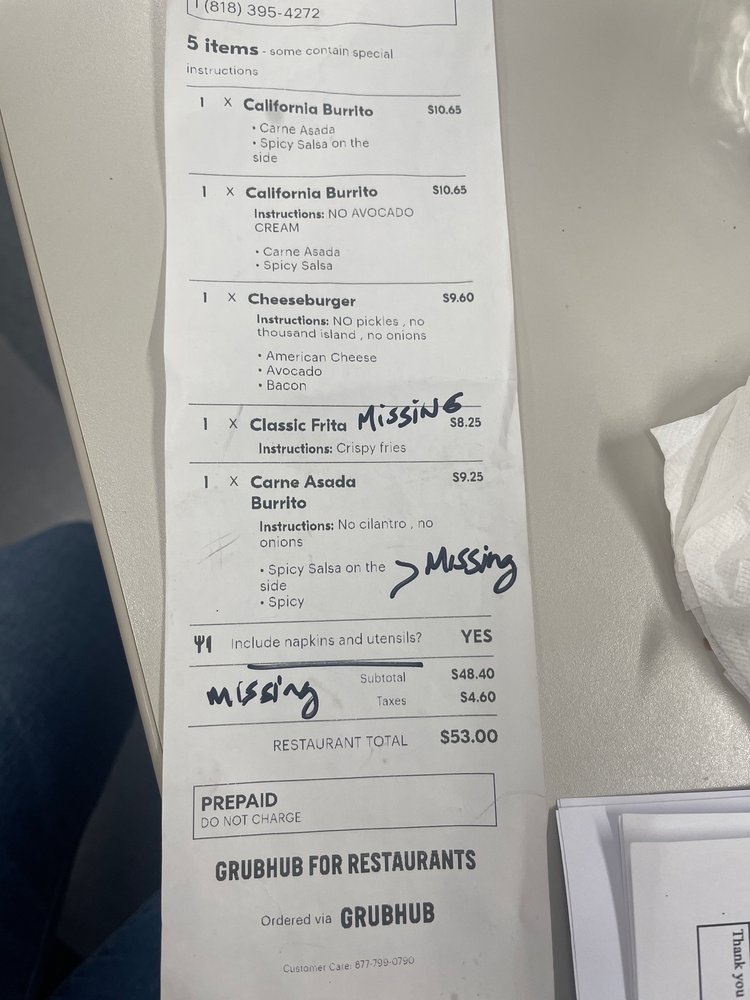 (818) 395-4272
5 items - some contain special
instructions
1 X California Burrito $10.65
• Carne Asada
• Spicy Salsa on the
side
1 X California Burrito $10.65
Instructions: NO AVOCADO
CREAM
• Carne Asada
• Spicy Salsa
1 X Cheeseburger $9.60
Instructions: NO pickles , no
thousand island , no onions
• American Cheese
• Avocado
• Bacon
1 X Classic Frita MISSING $8.25
Instructions: Crispy fries
1 X Carne Asada $9.25
Burrito
Instructions: No cilantro , no
onions
• Spicy Salsa on the
side
• Spicy
> Missing
Include napkins and utensils? YES
Missing
Subtotal $48.40
Taxes $4.60
RESTAURANT TOTAL $53.00
PREPAID
DO NOT CHARGE
GRUBHUB FOR RESTAURANTS
Ordered via GRUBHUB
Customer Care: 877-799-0790
Thank you